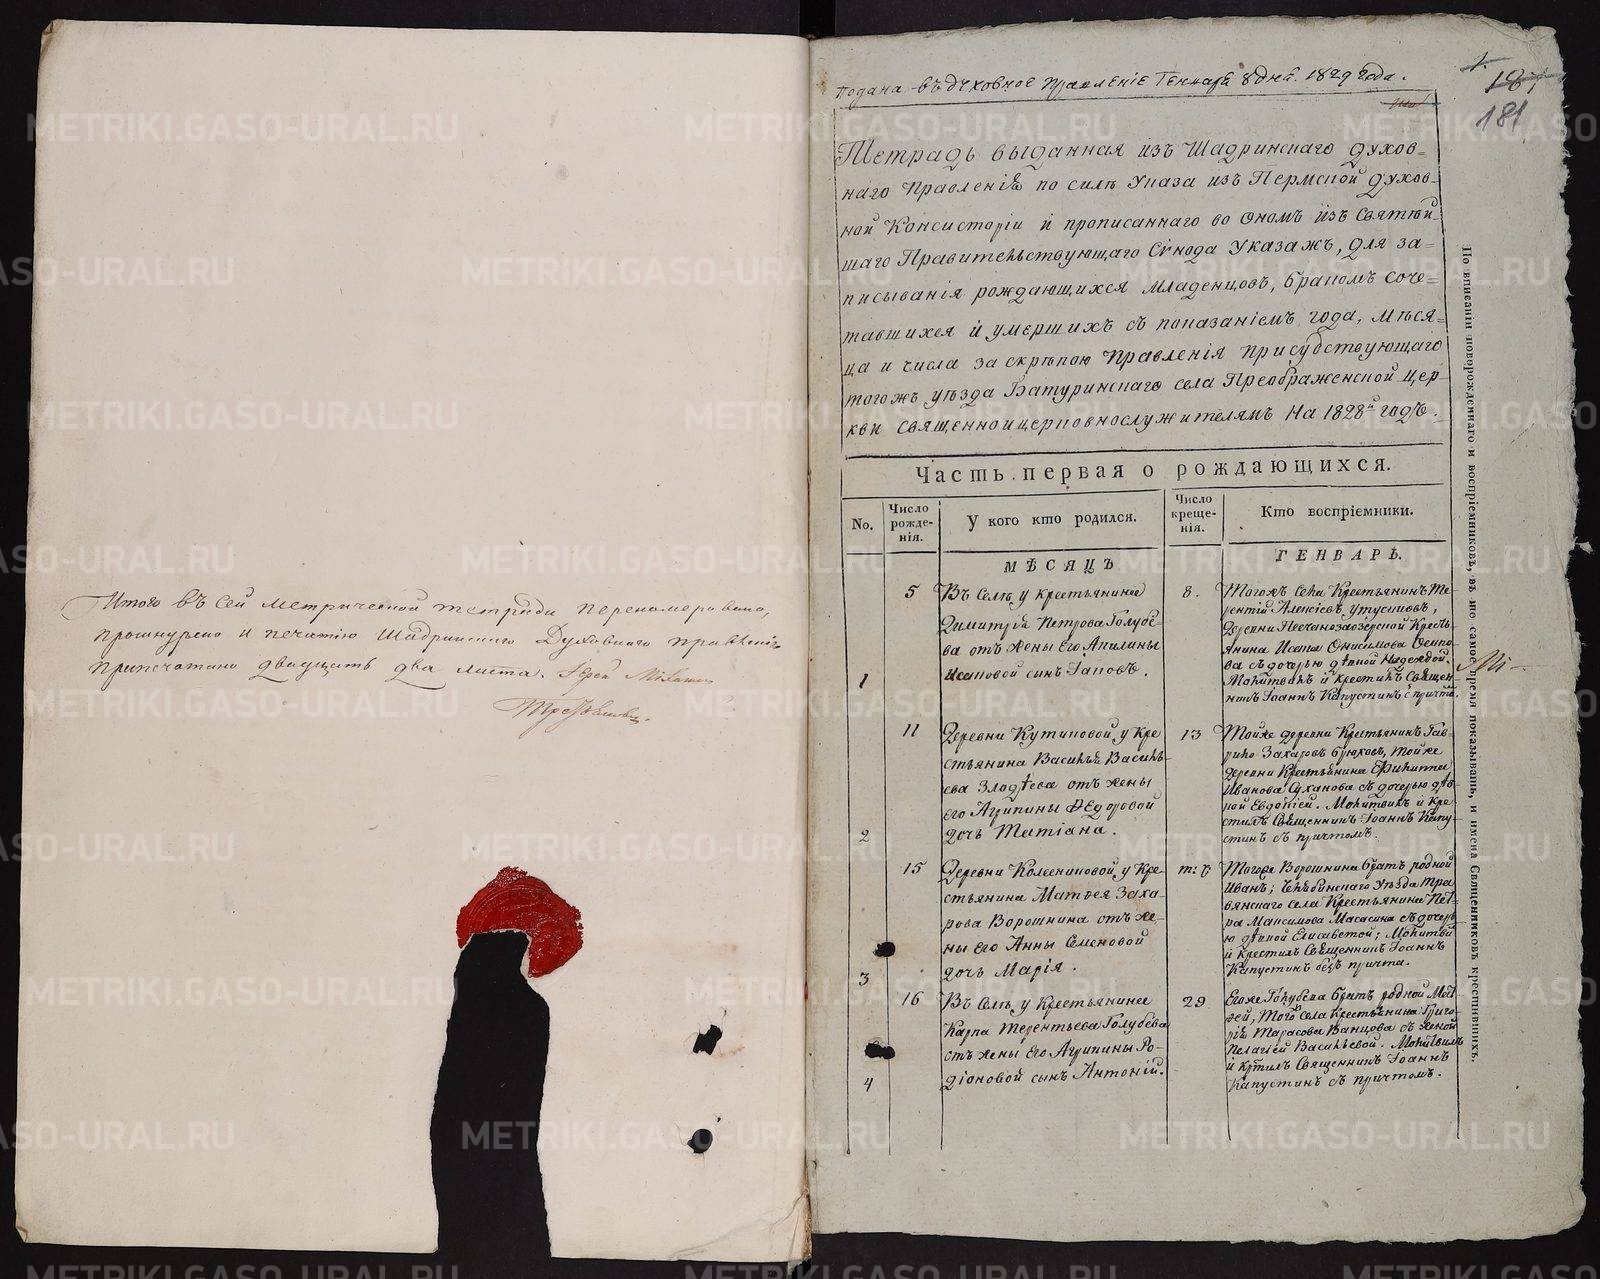 Итого въ сей метрической тетради перенумеровано,
прошнурено и печатью Шадринскаго Духовнаго правленія
припечатано двадцать два листа. Іерей
Подана въ духовное правленіе Генваря 8 дня. 1829 года.
181
Тетрадь выданная изъ Шадринскаго духов-
наго правленія по силѣ указа изъ Пермской духов-
ной Консисторіи и прописаннаго во ономъ изъ Святѣй-
шаго Правительствующаго Сѵнода указахъ, для за-
писыванія рождающихся младенцовъ, бракомъ соче-
тавшихся и умершихъ съ показаніемъ года, мѣся-
ца и числа за скрѣпою правленія присудствующаго
тогожъ уѣзда Батуринскаго села Преображенской цер-
кви священноицерковнослужителямъ на 1828й годъ.
Часть первая о рождающихся.
No.
Число рожде-нія.
У кого кто родился.
Число креще-нія.
Кто воспріемники.
МѢСЯЦЪ
ГЕНВАРЬ.
1
5
Въ Селѣ, у крестьянина
Димитрія Петрова Голубе-
ва отъ жены его Акилины
Исаковой сынъ Іаковъ.
8.
Тогожъ села Крестьянинъ Те-
рентій Алексіевъ,
деревни Песчанозаозерской Кресть-
янина Исета Онисимова Осипо-
ва съ дочерью дѣвкой Надеждой.
Молитвилъ и крестилъ Священ-
никъ Іоаннъ Капустинъ с причтомъ.
2
11
Деревни Кутиковой, у Кре
стьянина Василья Василь-
ева Злодѣева отъ жены
его Агрипины Ѳедоровой
дочь Татіана.
13
Тойже деревни Крестьянинъ Гав-
рило Захаровъ Брюховъ, тойже
деревни Крестьянина Филиппа
Иванова Суханова съ дочерью дѣв-
кой Евдокіей. Молитвилъ и кре-
стилъ Священникъ Іоаннъ Капу-
стинъ съ причтомъ.
3
15
Деревни Колесниковой, у Кре-
стьянина Матѳея Заха-
рова Ворошнина отъ же-
ны его Анны Семеновой
дочь Марія.
Тогоже Ворошнина братъ родной
Иванъ; Челябинскаго уѣзда Тра
вянскаго села Крестьянина Пет-
ра Максимова Масасина съ дочерь
ю дѣвкой Елисаветой; Молитвилъ
и крестилъ Священникъ Іоаннъ
Капустинъ безъ причта.
4
16
Въ Селѣ, у Крестьянина
Карпа Терентьева Голубева
отъ жены его Агрипины Ро-
діоновой сынъ Антоній.
29
Егоже Голубева братъ родной Мат-
ѳей, того села крестьянина Григо-
рія Тарасова Ванцова съ женой
Пелагіей Васильевой. Молитвилъ
и крестилъ Священникъ Іоаннъ
Капустинъ съ причтомъ.
По вписаніи новорожденнаго и воспріемниковъ, въ то самое время показывать, и имена Священниковъ крестившихъ.
METRIKI.GASO-URAL.RU